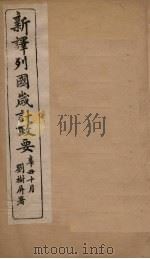 新譯列國歲計政要
辛丑十月
劉樹屏署